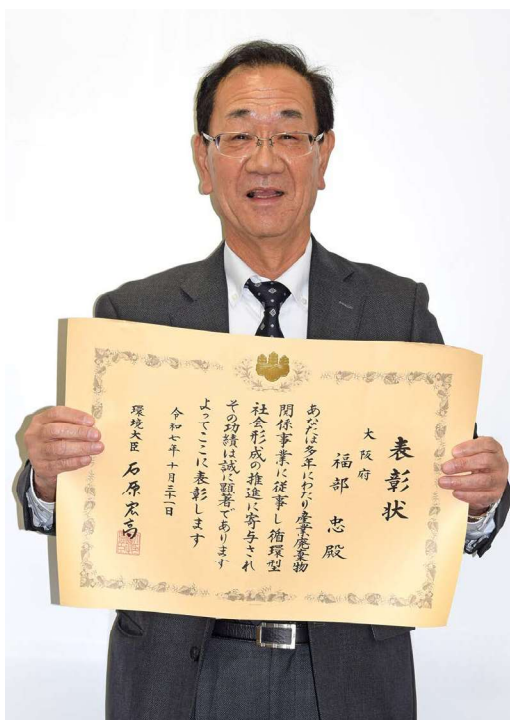 表彰状
大阪府
福部 忠 殿
あなたは多年にわたり産業廃棄物
関係事業に従事し循環型
社会形成の推進に寄与され
その功績は誠に顕著であります
よってここに表彰します
令和七年十月三十一日
環境大臣 石原宏高